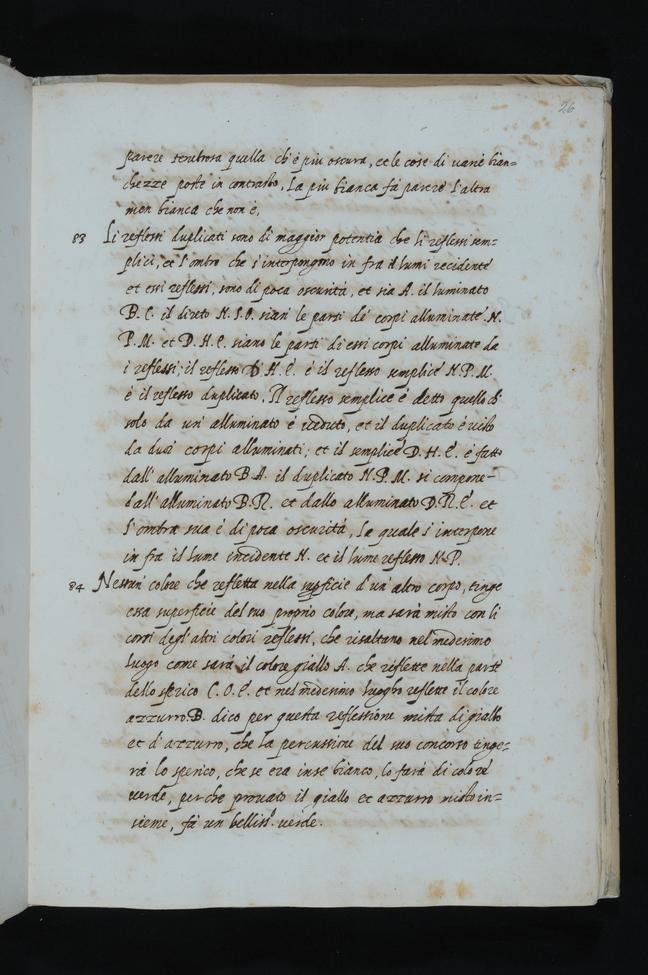 26
parere tenebrosa quella ch'è più oscura, et le cose di varie bian=
chezze poste in contrasto, la più bianca fà parere l'altra
men bianca che non è.
83 Li reflessi duplicati sono di maggior potentia che li reflessi sem=
plici, et l'ombre che s'interpongono in fra il lumi incidente
et essi reflessi, sono di poca oscurità, et sia A. il luminato
B. C. il direto N. S. O. sian le parti de' corpi alluminate N.
P. M. et D. H. E. siano le parti di essi corpi alluminate da
i reflessi; il reflesso D. H. E. è il reflesso semplice N. P. M.
è il reflesso duplicato. Il reflesso semplice è detto quello ch'
solo da un' alluminato è veduto, et il duplicato è visto
da dui corpi alluminati; et il semplice D. H. E. è fatto
dall' alluminato B. A. il duplicato N. P. M. si compone
dall' alluminato B. N. et dallo alluminato D. N. E. et
l'ombra sua è di poca oscurità, la quale s' interpone
in fra il lume incidente N. et il lume reflesso N. P.
84 Nessun' colore che refletta nella supficie d'un' altro corpo, tinge
essa superficie del suo proprio colore, ma sarà misto con li
corsi degl' altri colori reflessi, che risaltano nel medesimo
luogo come sarà il colore giallo A. che reflette nella parte
dello sperico C. O. E. et nel medesimo luogho reflette il colore
azzurro B. dico per questa reflessione mista di giallo
et d'azzurro, che la percussione del suo concorso tinge=
rà lo sperico, che se era in se bianco, lo farà di colore
verde, perche provato il giallo et azzurro misto in=
sieme, fà un belliss.º verde.